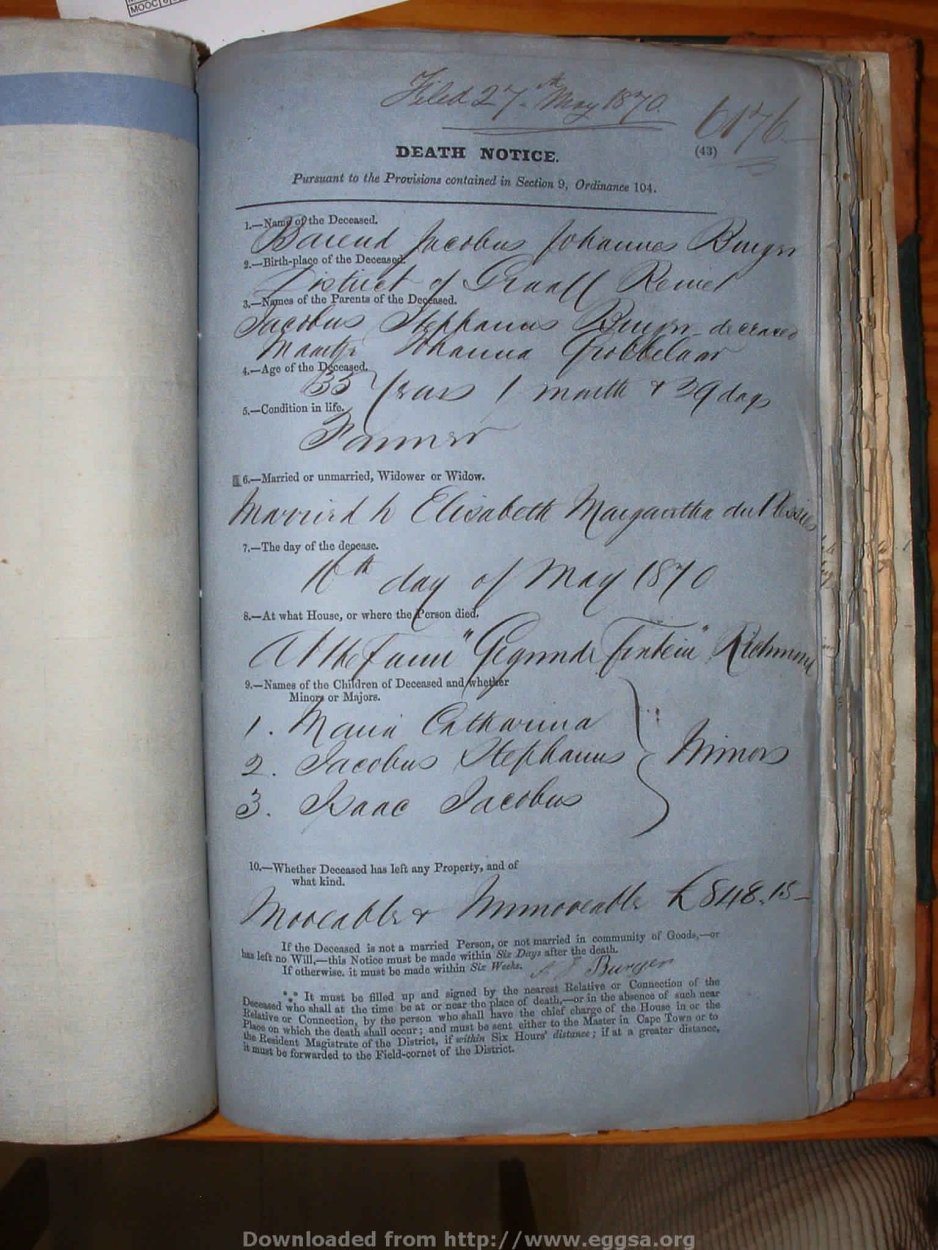 MOOC 6
Filed 27th May 1870
6176
DEATH NOTICE.
(43)
Pursuant to the Provisions contained in Section 9, Ordinance 104.
1.—Name of the Deceased.
Barend Jacobus Johannes Burger
2.—Birth-place of the Deceased.
District of Graaff Reinet
3.—Names of the Parents of the Deceased.
Jacobus Stephanus Burger deceased
Johanna Grobbelaar
4.—Age of the Deceased.
35 Years 1 month & 29 days
5.—Condition in life.
Farmer
6.—Married or unmarried, Widower or Widow.
Married to Elisabeth Margaretha du Plessis
7.—The day of the decease.
day of May 1870
8.—At what House, or where the Person died.
At the farm " Fontein" Richmond
9.—Names of the Children of Deceased and whether
Minors or Majors.
1. Maria Catharina
2. Jacobus Stephanus } Minors
3. Isaac Jacobus
10.—Whether Deceased has left any Property, and of
what kind.
Moveable & Immoveable £848.15–
If the Deceased is not a married Person, or not married in community of Goods,—or
has left no Will,—this Notice must be made within Six Days after the death.
If otherwise, it must be made within Six Weeks.
Burger
*** It must be filled up and signed by the nearest Relative or Connection of the
Deceased who shall at the time be at or near the place of death,—or in the absence of such near
Relative or Connection, by the person who shall have the chief charge of the House in or the
Place on which the death shall occur; and must be sent either to the Master in Cape Town or to
the Resident Magistrate of the District, if within Six Hours' distance; if at a greater distance,
it must be forwarded to the Field-cornet of the District.
Downloaded from http://www.eggsa.org